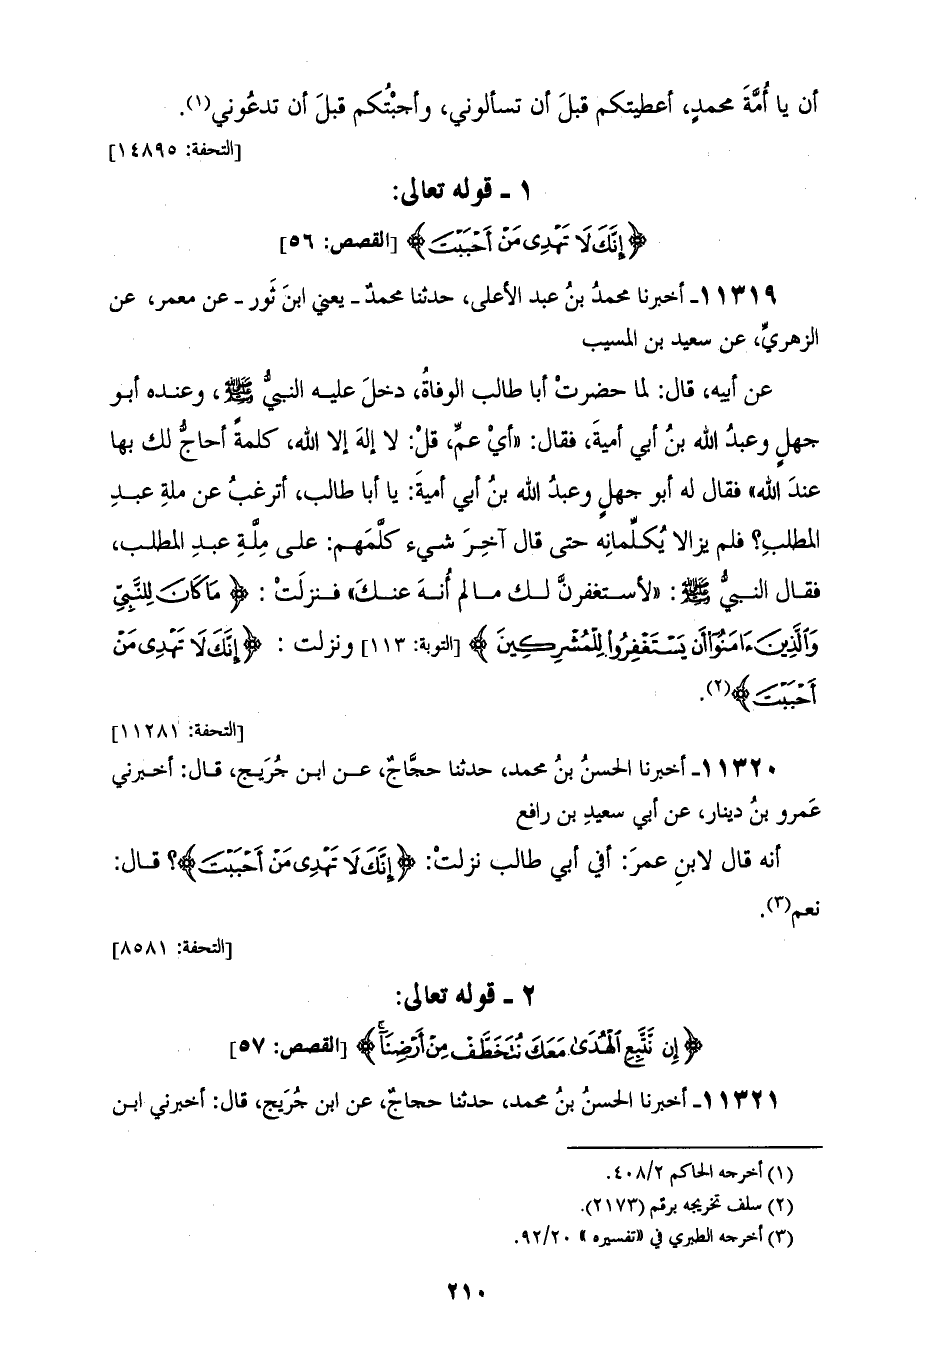 أن يا أُمَّةَ محمدٍ، أعطيتكم قبلَ أن تسألوني، وأجبْتُكم قبلَ أن تدعُوني(١).
[التحفة: ١٤٨٩٥]
١ ـ قوله تعالى:
﴿إِنَّكَ لَا تَهْدِى مَنْ أَحْبَبْتَ﴾ [القصص: ٥٦]
١١٣١٩ـ أخبرنا محمدُ بنُ عبد الأعلى، حدثنا محمدٌ ـ يعني ابنَ ثَور ـ عن معمر، عن
الزهريِّ، عن سعيد بن المسيب
عن أبيه، قال: لما حضرتْ أبا طالب الوفاةُ، دخلَ عليه النبيُّ ﷺ، وعنده أبو
جهلٍ وعبدُ الله بنُ أبي أميةَ، فقال: «أيْ عمِّ، قلْ: لا إلهَ إلا الله، كلمةً أحاجُّ لك بها
عندَ الله» فقال له أبو جهلٍ وعبدُ الله بنُ أبي أميةَ: يا أبا طالب، أترغبُ عن ملةِ عبدِ
المطلبِ؟ فلم يزالا يُكلِّمانِه حتى قال آخِرَ شيء كلَّمَهم: على مِلَّةِ عبدِ المطلب،
فقال النبيُّ ﷺ: «لأستغفرنَّ لك مالم أُنهَ عنكَ» فنزلَتْ: ﴿مَا كَانَ لِلنَّبِيِّ
وَالَّذِينَ ءَامَنُوٓا أَن يَسْتَغْفِرُوا لِلْمُشْرِكِينَ﴾ [التوبة: ١١٣] ونزلت: ﴿إِنَّكَ لَا تَهْدِى مَنْ
أَحْبَبْتَ﴾(٢).
[التحفة: ١١٢٨١]
١١٣٢٠ـ أخبرنا الحسنُ بنُ محمد، حدثنا حجَّاجٌ، عن ابن جُرَيج، قال: أخبرني
عَمرو بنُ دينار، عن أبي سعيدِ بن رافع
أنه قال لابنِ عمرَ: أفي أبي طالب نزلتْ: ﴿إِنَّكَ لَا تَهْدِى مَنْ أَحْبَبْتَ﴾؟ قال:
نعم(٣).
[التحفة: ٨٥٨١]
٢ ـ قوله تعالى:
﴿إِن نَّتَّبِعِ ٱلْهُدَىٰ مَعَكَ نُتَخَطَّفْ مِنْ أَرْضِنَآ﴾ [القصص: ٥٧]
١١٣٢١ـ أخبرنا الحسنُ بنُ محمد، حدثنا حجاجٌ، عن ابن جُرَيج، قال: أخبرني ابن
(١) أخرجه الحاكم ٤٠٨/٢.
(٢) سلف تخريجه برقم (٢١٧٣).
(٣) أخرجه الطبري في «تفسيره» ٩٢/٢٠.
٢١٠